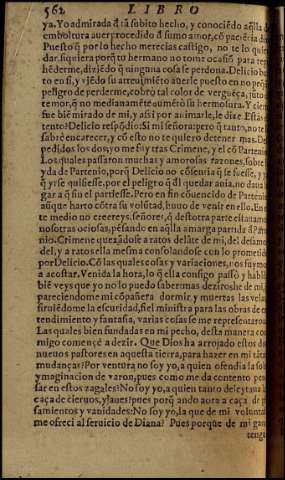 562 LIBRO
ya. Yo admirada d̃ tã subito hecho, y conociẽdo aq̃lla
emboltura auer procedido d̃ sumo amor, cõ paciẽcia
Puesto q̃ por lo hecho merecias castigo, no te lo quie
dar. siquiera porq̃ tu hermano no tome ocasiõ para re
hẽderme, diziẽdo q̃ ninguna cosa se perdona. Delicio bu
to en si, y viẽdo su atreuimiẽto auerle puesto en no peq̃
peligro de perderme, cobrò tal color de verguẽça, juto
temor, q̃ no medianamẽte aumẽtò su hermosura. Y cierto
fue biẽ mirado de mi, y assi por animarle, le dixe. Estàs
tento? Delicio respõdio: Si mi señora: pero q̃ tanto, no te
sabrè encarecer, y cõ esto no te quiero detener mas. De
pedidos los dos, yo me fuy tras Crimene, y el cõ Parteni
Los quales passaron muchas y amorosas razones, sobre
yda de Partenio, porq̃ Delicio no cõsentia q̃ se fuesse, y
q̃ yrse quisiesse, por el peligro q̃ del quedar auia, no daua l
gar a q̃ sin el partiesse. Pero en fin cõuencido de Partenio
aũque harto cõtra su volũtad, huuo de venir en ello. En es
te medio no creereys, señores, q̃ destotra parte estauamos
nosotras ociosas, pẽsando en aq̃lla amarga partida d̃ Parte
nio. Crimene quexãdose a ratos delãte de mi, del desamo
del, y a ratos ella mesma consolandose con lo prometido
por Delicio. Cõ las quales cosas y variaciones, nos fuymos
a acostar. Venida la hora, lo q̃ ella consigo passò y hablò
biẽ veys que yo no lo puedo saber mas deziros he de mi,
pareciendome mi cõpañera dormir, y muertas las velas
siruiẽdome la escuridad, fiel ministra para las obras de en
tendimiento y fantasia, varias cosas se me representaron
Las quales bien fundadas en mi pecho, desta manera con
migo començè a dezir. Que Dios ha arrojado estos dos
nueuos pastores en aquesta tierra, para hazer en mi tãtas
mudanças? Por ventura no soy yo, a quien ofendia la sola
ymaginacion de varon, pues como me da contento pen
sar en estos zagales? No soy yo, a quien tanto deleytaua la
caça de cieruos, y aues? pues porq̃ ando aora a caça de pẽ
samientos y vanidades: No soy yo, la que de mi voluntad
me ofreci al seruicio de Diana? Pues porque de mi gana
tengo